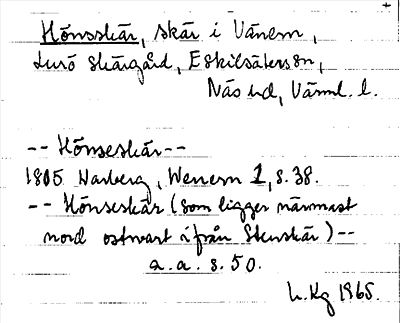 Hönsskär, skär i Vänern,
Lurö skärgård, Eskilsäters sn,
Näs hd, Värml. l.
-- Hönseskär --
1805 Warberg, Wenern 1, s. 38.
-- Hönseskär (som ligger närmast
nord ostwart ifrån Stenskär) --
a. a. s. 50.
L. Kg 1965.